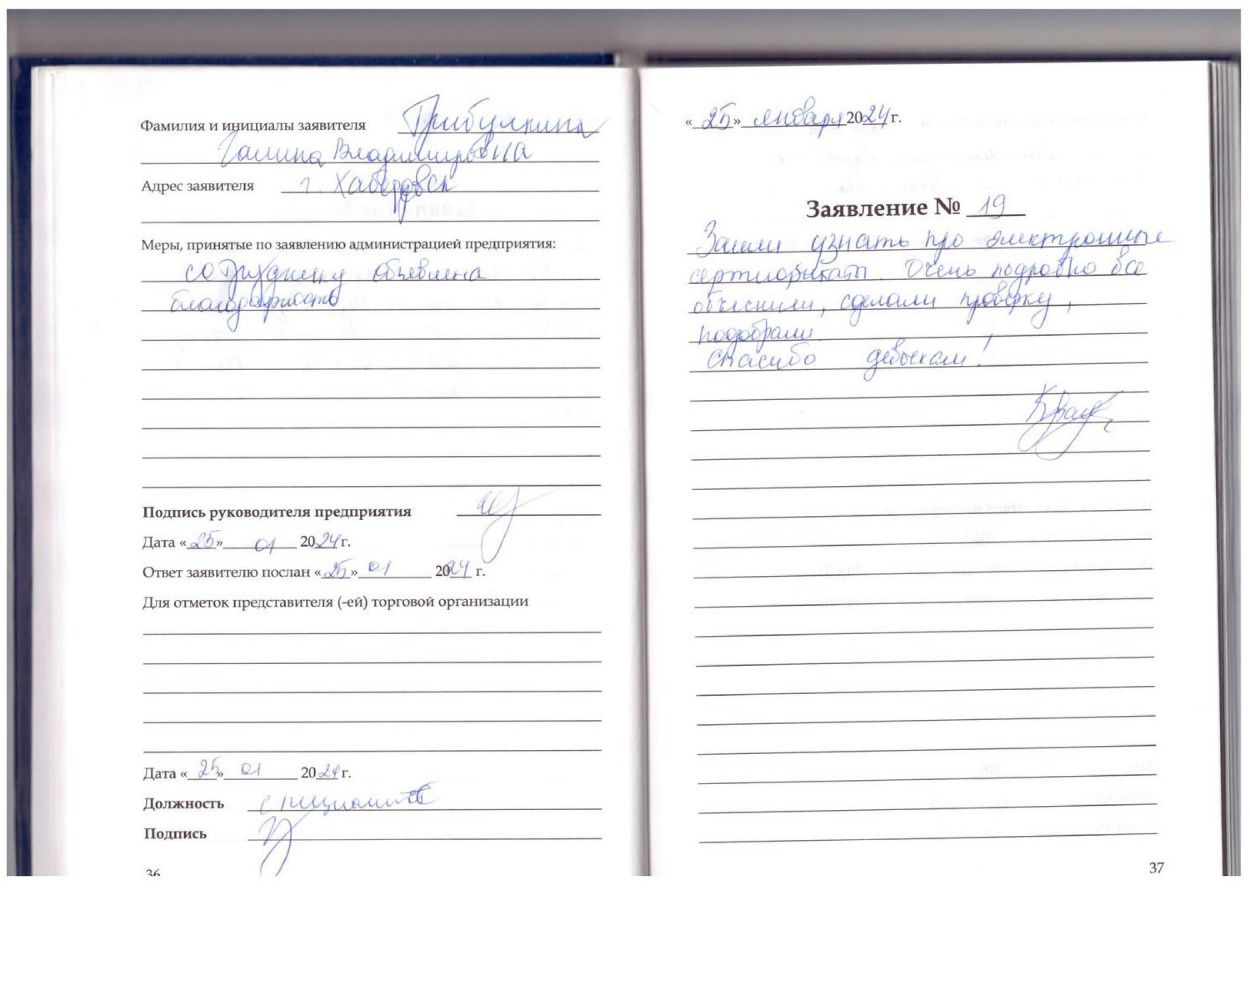 Фамилия и инициалы заявителя Прибулкина
Галина Владимировна
Адрес заявителя г. Хабаровск
Меры, принятые по заявлению администрацией предприятия:
сотруднику объявлена
благодарность
Подпись руководителя предприятия
Дата «25» 01 2024 г.
Ответ заявителю послан «25» 01 2024 г.
Для отметок представителя (-ей) торговой организации
Дата «25» 01 2024 г.
Должность специалист
Подпись
36
«25» января 2024 г.
Заявление № 19
Зашли узнать про электронные
сертификаты. Очень подробно все
объяснили, сделали проверку,
подобрали.
Спасибо девочкам!
37